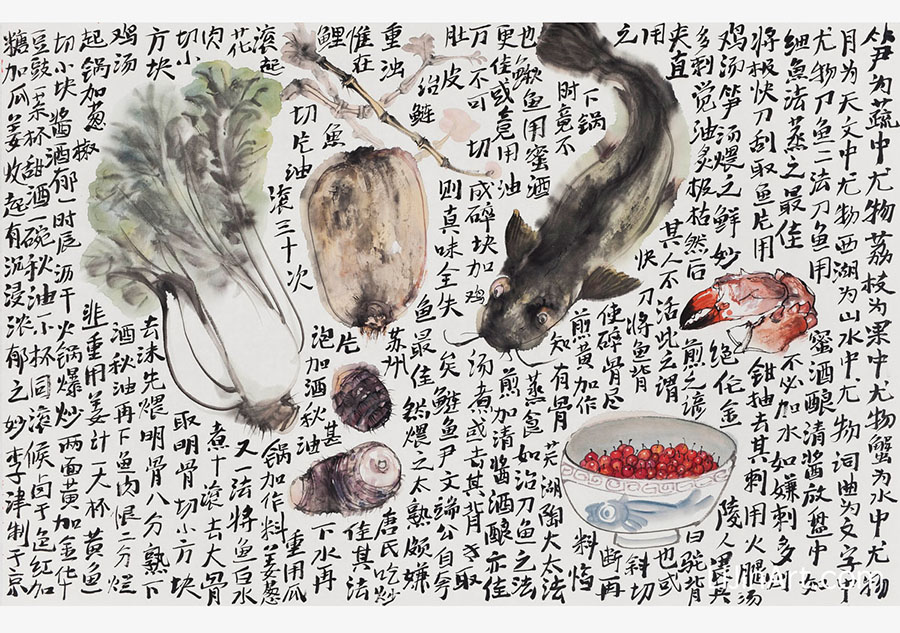 笋为蔬中尤物荔枝为果中尤物蟹为水中尤物
月为天文中尤物西湖为山水中尤物词曲为文字中
尤物刀鱼二法刀鱼用蜜酒酿清酱放盘中如
细鱼法蒸之最佳不必加水如嫌刺多则
将极快刀刮取鱼片用钳抽去其刺用火腿汤
鸡汤笋汤煨之鲜妙绝伦金陵人畏其
多刺觉油炙极枯然后煎之谚曰驼背
夹直其人不活此之谓也或
用快刀将鱼背斜切
之使碎骨尽断再
煎黄加作料
下锅时竟不知有骨芜湖陶大太法
也鳓鱼用蜜酒蒸食如治刀鱼之法
更佳或竟用油煎加清酱酒酿亦佳
万不可切成碎块加鸡汤煮或去其背专取
肚皮则真味全失矣鲢鱼尹文端公自夸
治鲢鱼最佳然煨之太熟颇嫌
重浊惟在苏州唐氏吃炒
鲤鱼片甚佳其法
切片油泡加酒秋油
滚三十次下水再
滚起锅加作料重用瓜姜葱
花又一法将鱼白水
肉切小煮十滚去大骨
方块取明骨切小方块
鸡汤去沫先煨明骨八分熟下
酒秋油再下鱼肉煨二分烂
起锅加葱椒韭重用姜汁一大杯黄鱼
切小块酱酒郁一时辰沥干火锅爆炒两面黄加金华
豆豉一茶杯甜酒一碗秋油一小杯同滚候卤干色红加
糖加瓜姜收起有沉浸浓郁之妙李津制于京